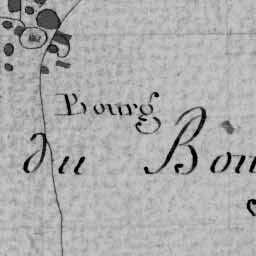 Bourg
du Bou